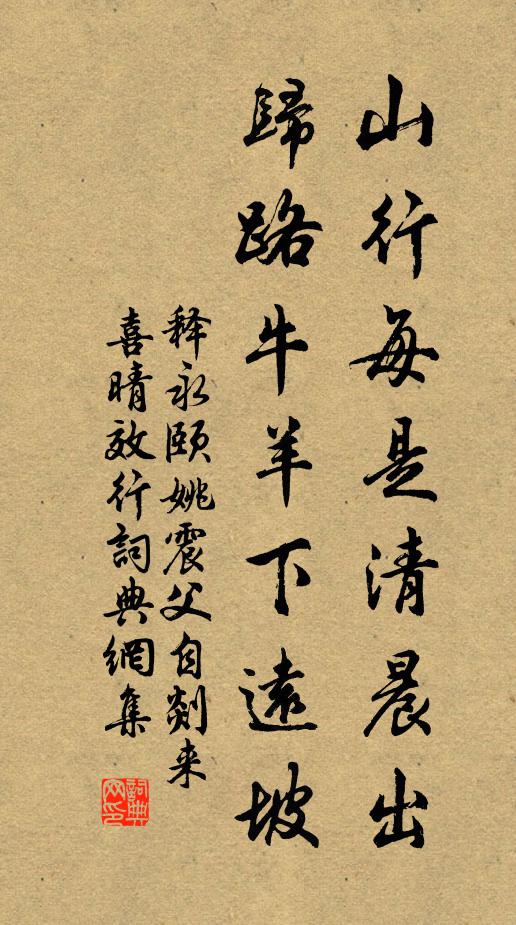 山行每是清晨出
歸路牛羊下遠坡
释永颐姚震父自剡来
喜晴效行詞典網集
詞典
网印